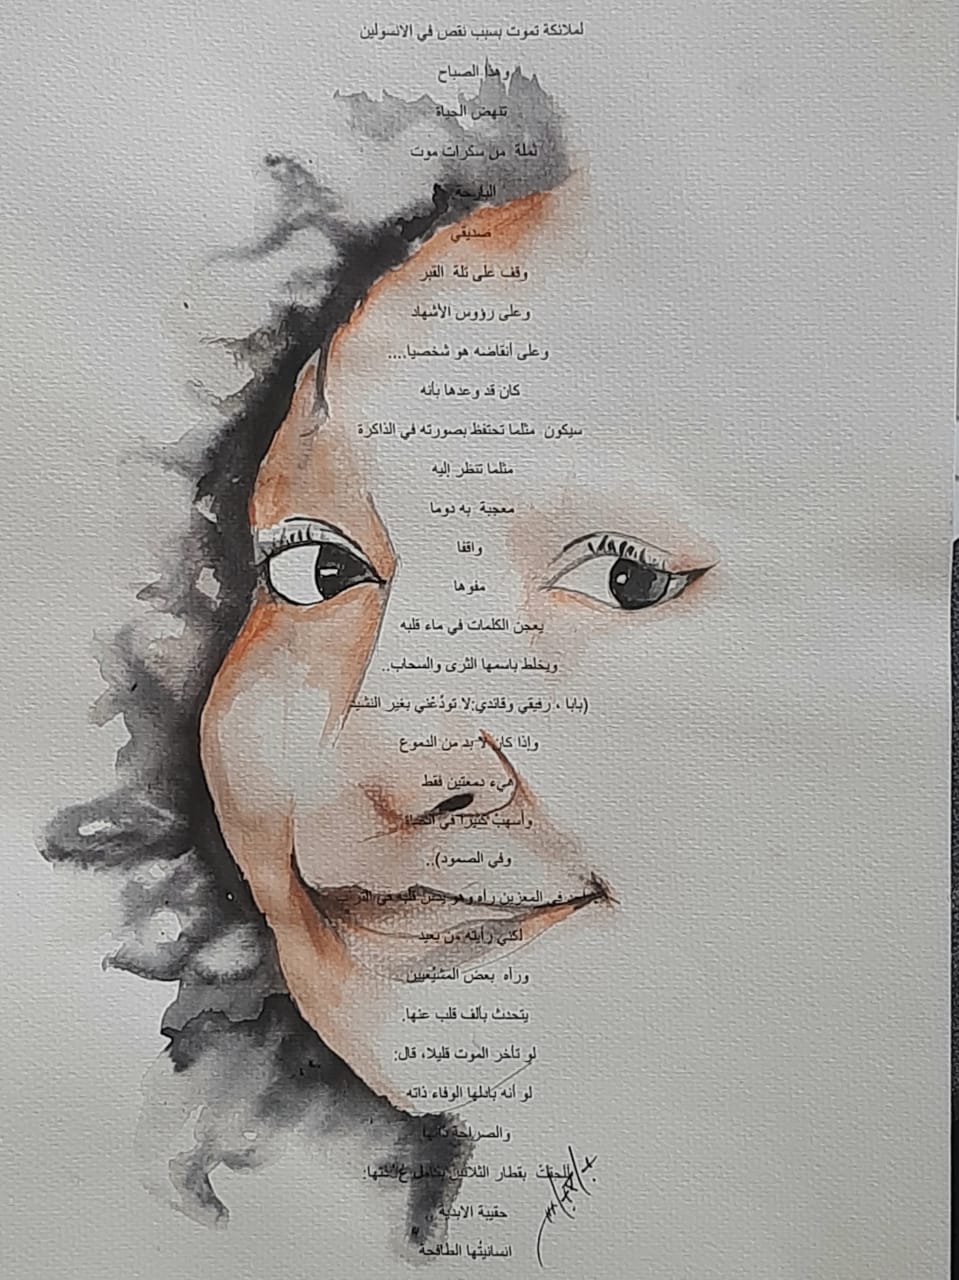 لملائكة تموت بسبب نقص في الانسولين
وهذا الصباح
تنهض الحياة
ثملة من سكرات موت
البارحة
صديقي
وقف على تلة القبر
وعلى رؤوس الأشهاد
وعلى أنقاضه هو شخصيا....
كان قد وعدها بأنه
سيكون مثلما تحتفظ بصورته في الذاكرة
مثلما تنظر إليه
معجبة به دوما
واقفا
مفوها
يعجن الكلمات في ماء قلبه
ويخلط باسمها الثرى والسحاب..
(بابا ، رفيقي وقائدي:لا تودّعْني بغير النشيد
وإذا كان لا بد من الدموع
هيء دمعتين فقط
وأسهبْ كثيرا في الحياة
وفي الصمود)..
في المعزين رآه وهو يدس قلبه في التراب
لكني رأيته من بعيد
ورآه بعض المشيّعيين
يتحدث بألف قلب عنها.
لو تأخر الموت قليلا، قال:
لو أنه بادلها الوفاء ذاته
والصراحة ذاتها
بقطار الثلاثين بكامل
حقيبة الابدية
انسانيتُها الطافحة